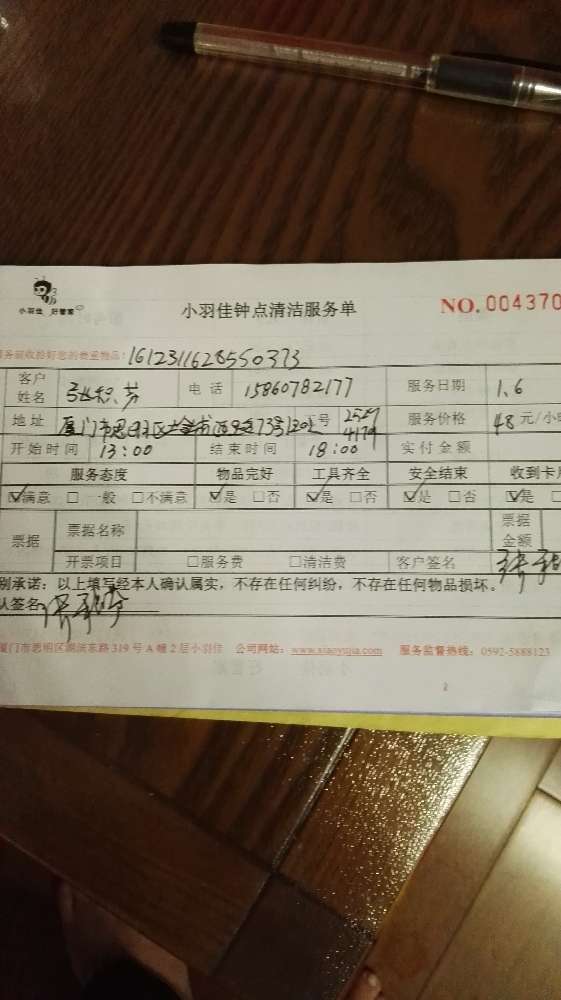 小羽佳 好管家
小羽佳钟点清洁服务单
NO. 004370
务前收拾好您的贵重物品: 1612311628550373
客户姓名 张积芳 电话 15860782177 服务日期 1.6
地址 厦门市思明区 73号 工号 2529 4179 服务价格 48元/小
开始时间 13:00 结束时间 18:00 实付金额
服务态度 物品完好 工具齐全 安全结束 收到卡
☑满意 □一般 □不满意 ☑是 □否 ☑是 □否 ☑是 □否 ☑是 □
票据 票据名称 票据金额
开票项目 □服务费 □清洁费 客户签名
别承诺：以上填写经本人确认属实，不存在任何纠纷，不存在任何物品损坏。
认签名:
厦门市思明区湖滨东路 319 号 A 幢 2 层小羽佳 公司网站：www.xiaoyujia.com 服务监督热线：0592-5888123
2